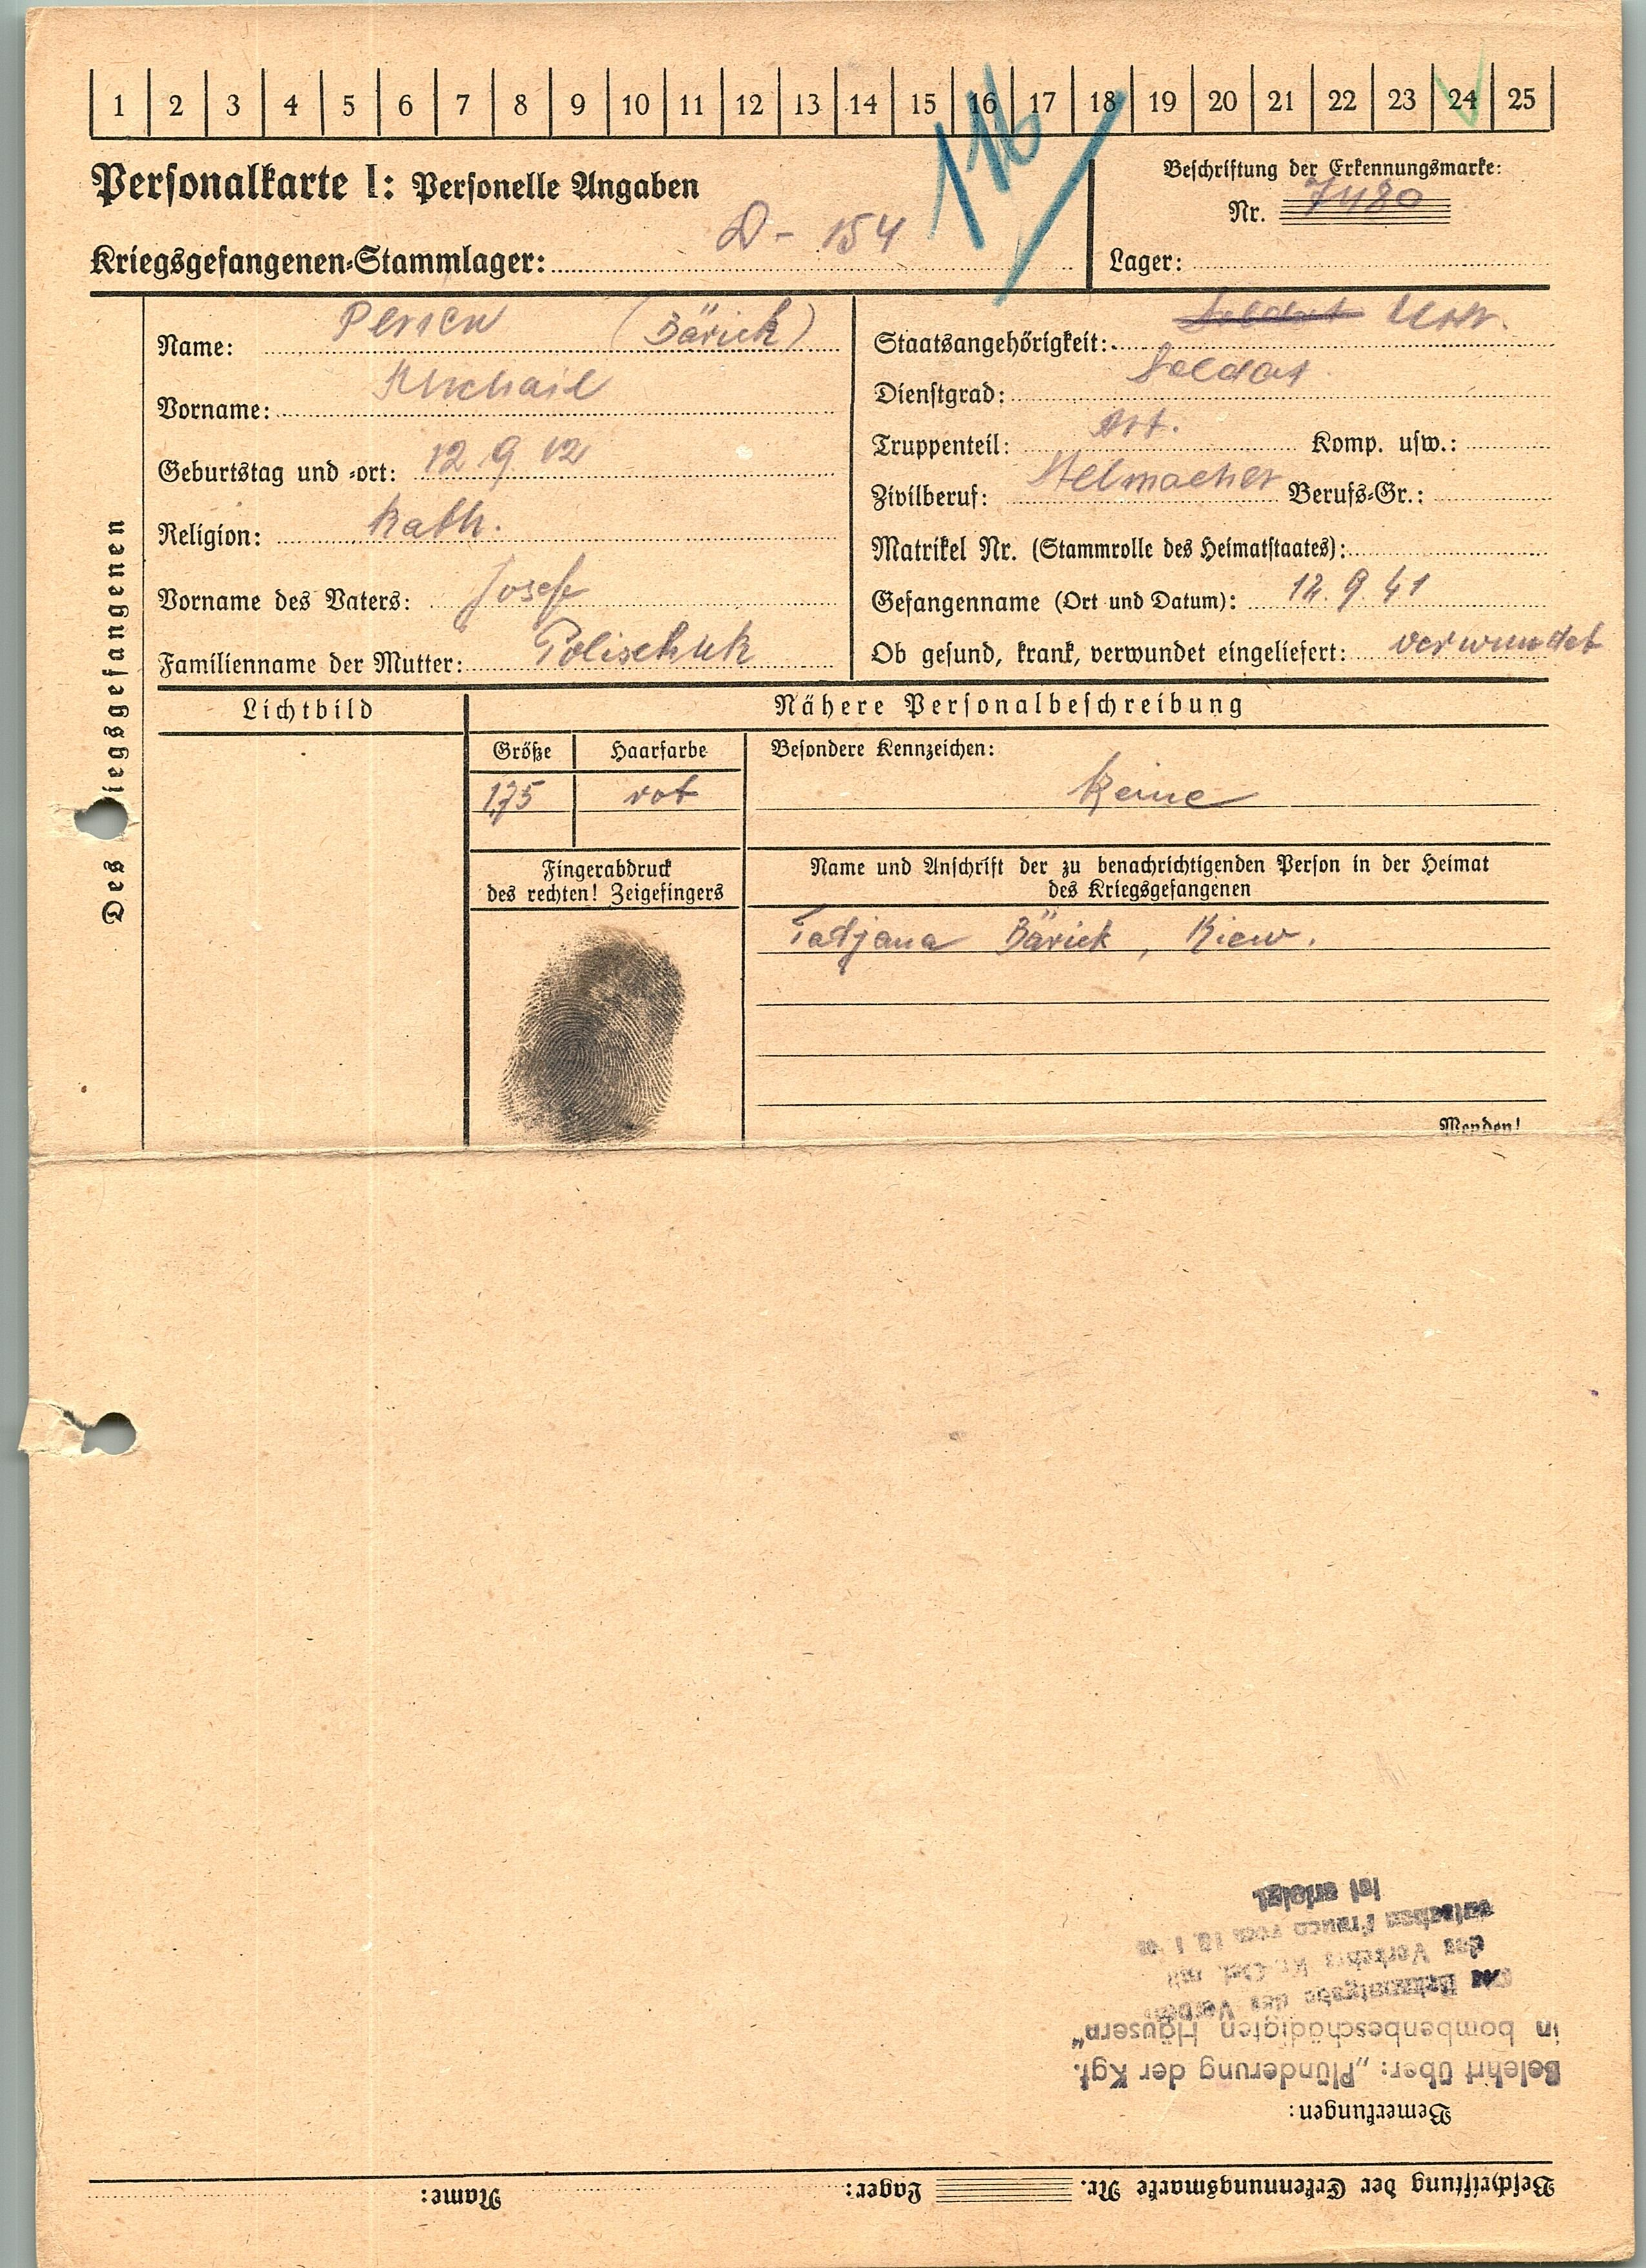 1 2 3 4 5 6 7 8 9 10 11 12 13 14 15 16 17 18 19 20 21 22 23 24 25
116
Personalkarte I: Personelle Angaben
Beschriftung der Erkennungsmarke:
Nr. 7480
D - 154
Kriegsgefangenen-Stammlager:
Lager:
Des Kriegsgefangenen
Name: (Bärick)
Vorname: Michail
Geburtstag und -ort: 12. 9. 12
Religion: kath.
Vorname des Vaters: Josef
Familienname der Mutter: Polischuk
Staatsangehörigkeit: Soldat
Dienstgrad: Soldat
Truppenteil: Art. Komp. usw.:
Zivilberuf: Stelmacher Berufs-Gr.:
Matrikel Nr. (Stammrolle des Heimatstaates):
Gefangenname (Ort und Datum): 12. 9. 41
Ob gesund, krank, verwundet eingeliefert: verwundet
Lichtbild
Nähere Personalbeschreibung
Größe Haarfarbe Besondere Kennzeichen:
1,75 rot Keine
Fingerabdruck
des rechten! Zeigefingers
Name und Anschrift der zu benachrichtigenden Person in der Heimat
des Kriegsgefangenen
Tatjana Bärick, Kiew.
Wenden!
Beschriftung der Erkennungsmarke Nr. Lager: Name:
Bemerkungen:
Belehrt über: „Plünderung der Kgf.
in bombenbeschädigten Häusern“
Die Bekanntgabe des Verbots
des Verkehrs Kr.-Gef. mit
deutschen Frauen vom 10. 1.
ist erfolgt